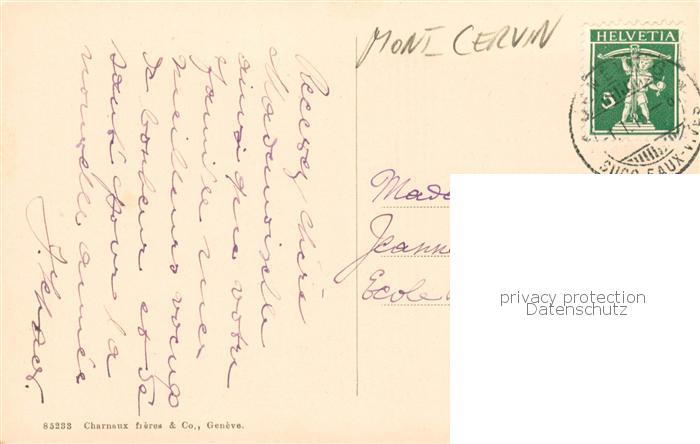 MONT CERVIN
HELVETIA
5
GENÈVE
EAUX-V
Recevez chère
Mademoiselle
ainsi que votre
famille mes
meilleurs vœux
de bonheur et de
santé pour la
nouvelle année
Made
Jeanne
Ecole
privacy protection
Datenschutz
85233 Charnaux frères & Co., Genève.